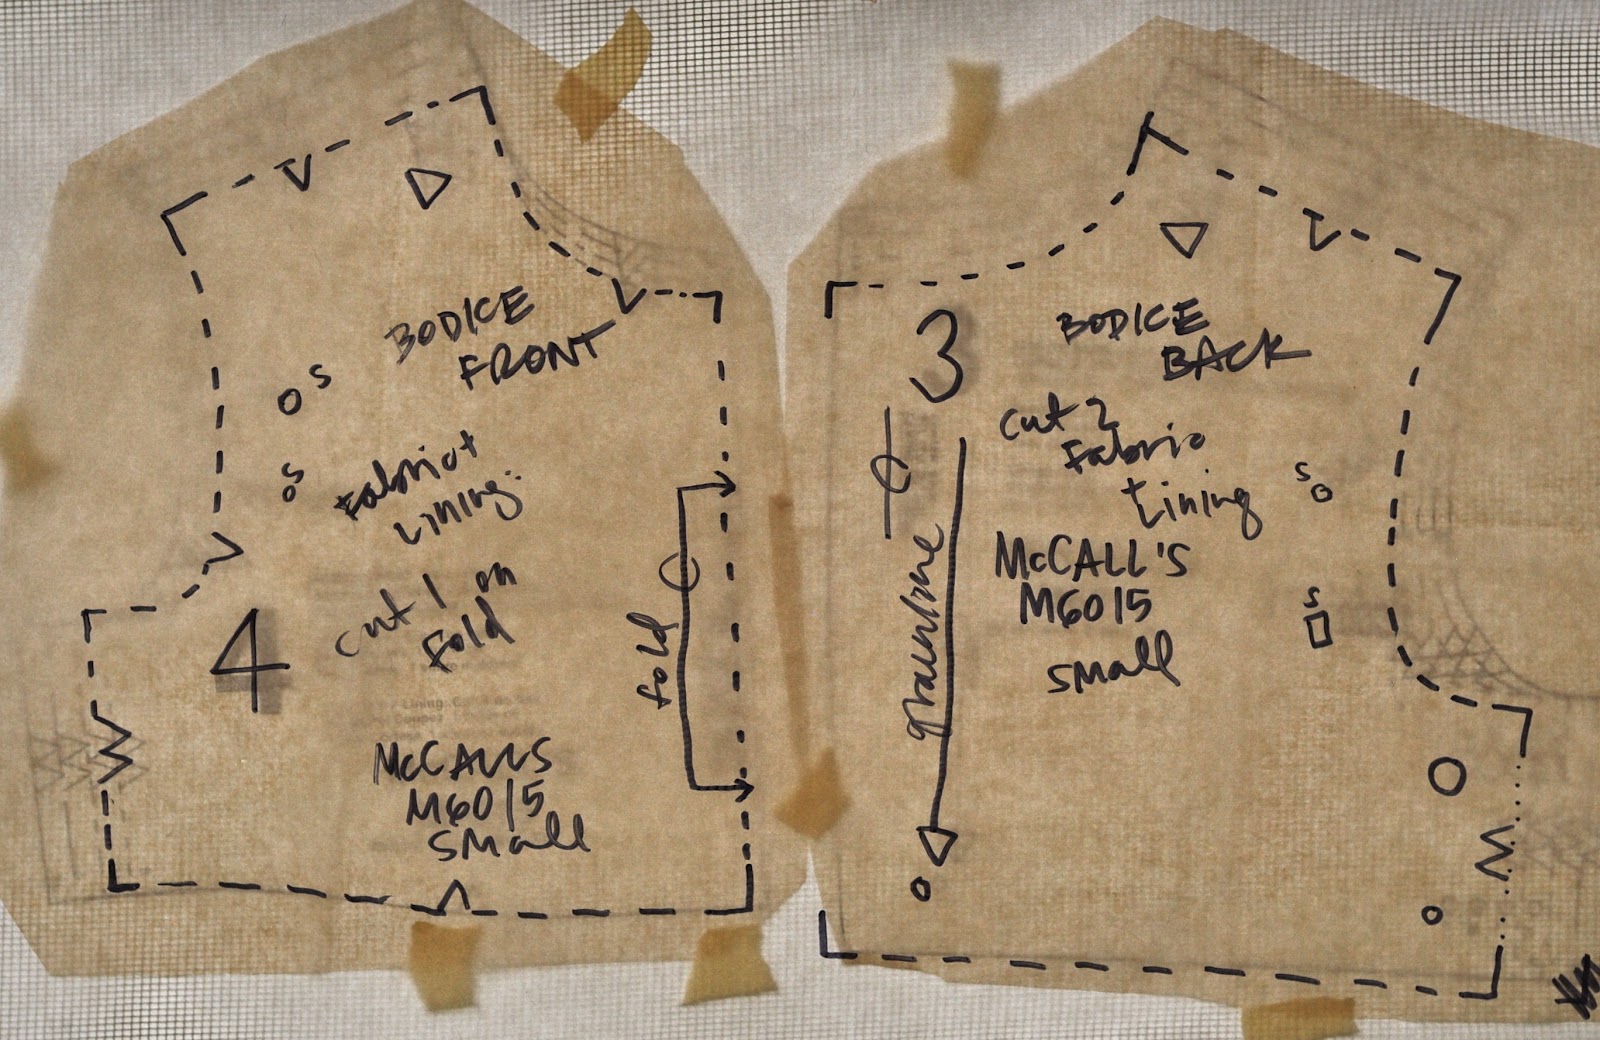 BODICE
FRONT
S
S
Fabric +
Lining.
cut 1 on
fold
4
fold
McCALLS
M6015
small
3
BODICE
BACK
cut 2
Fabric
+ Lining
S
grainline
McCALL'S
M6015
small
S